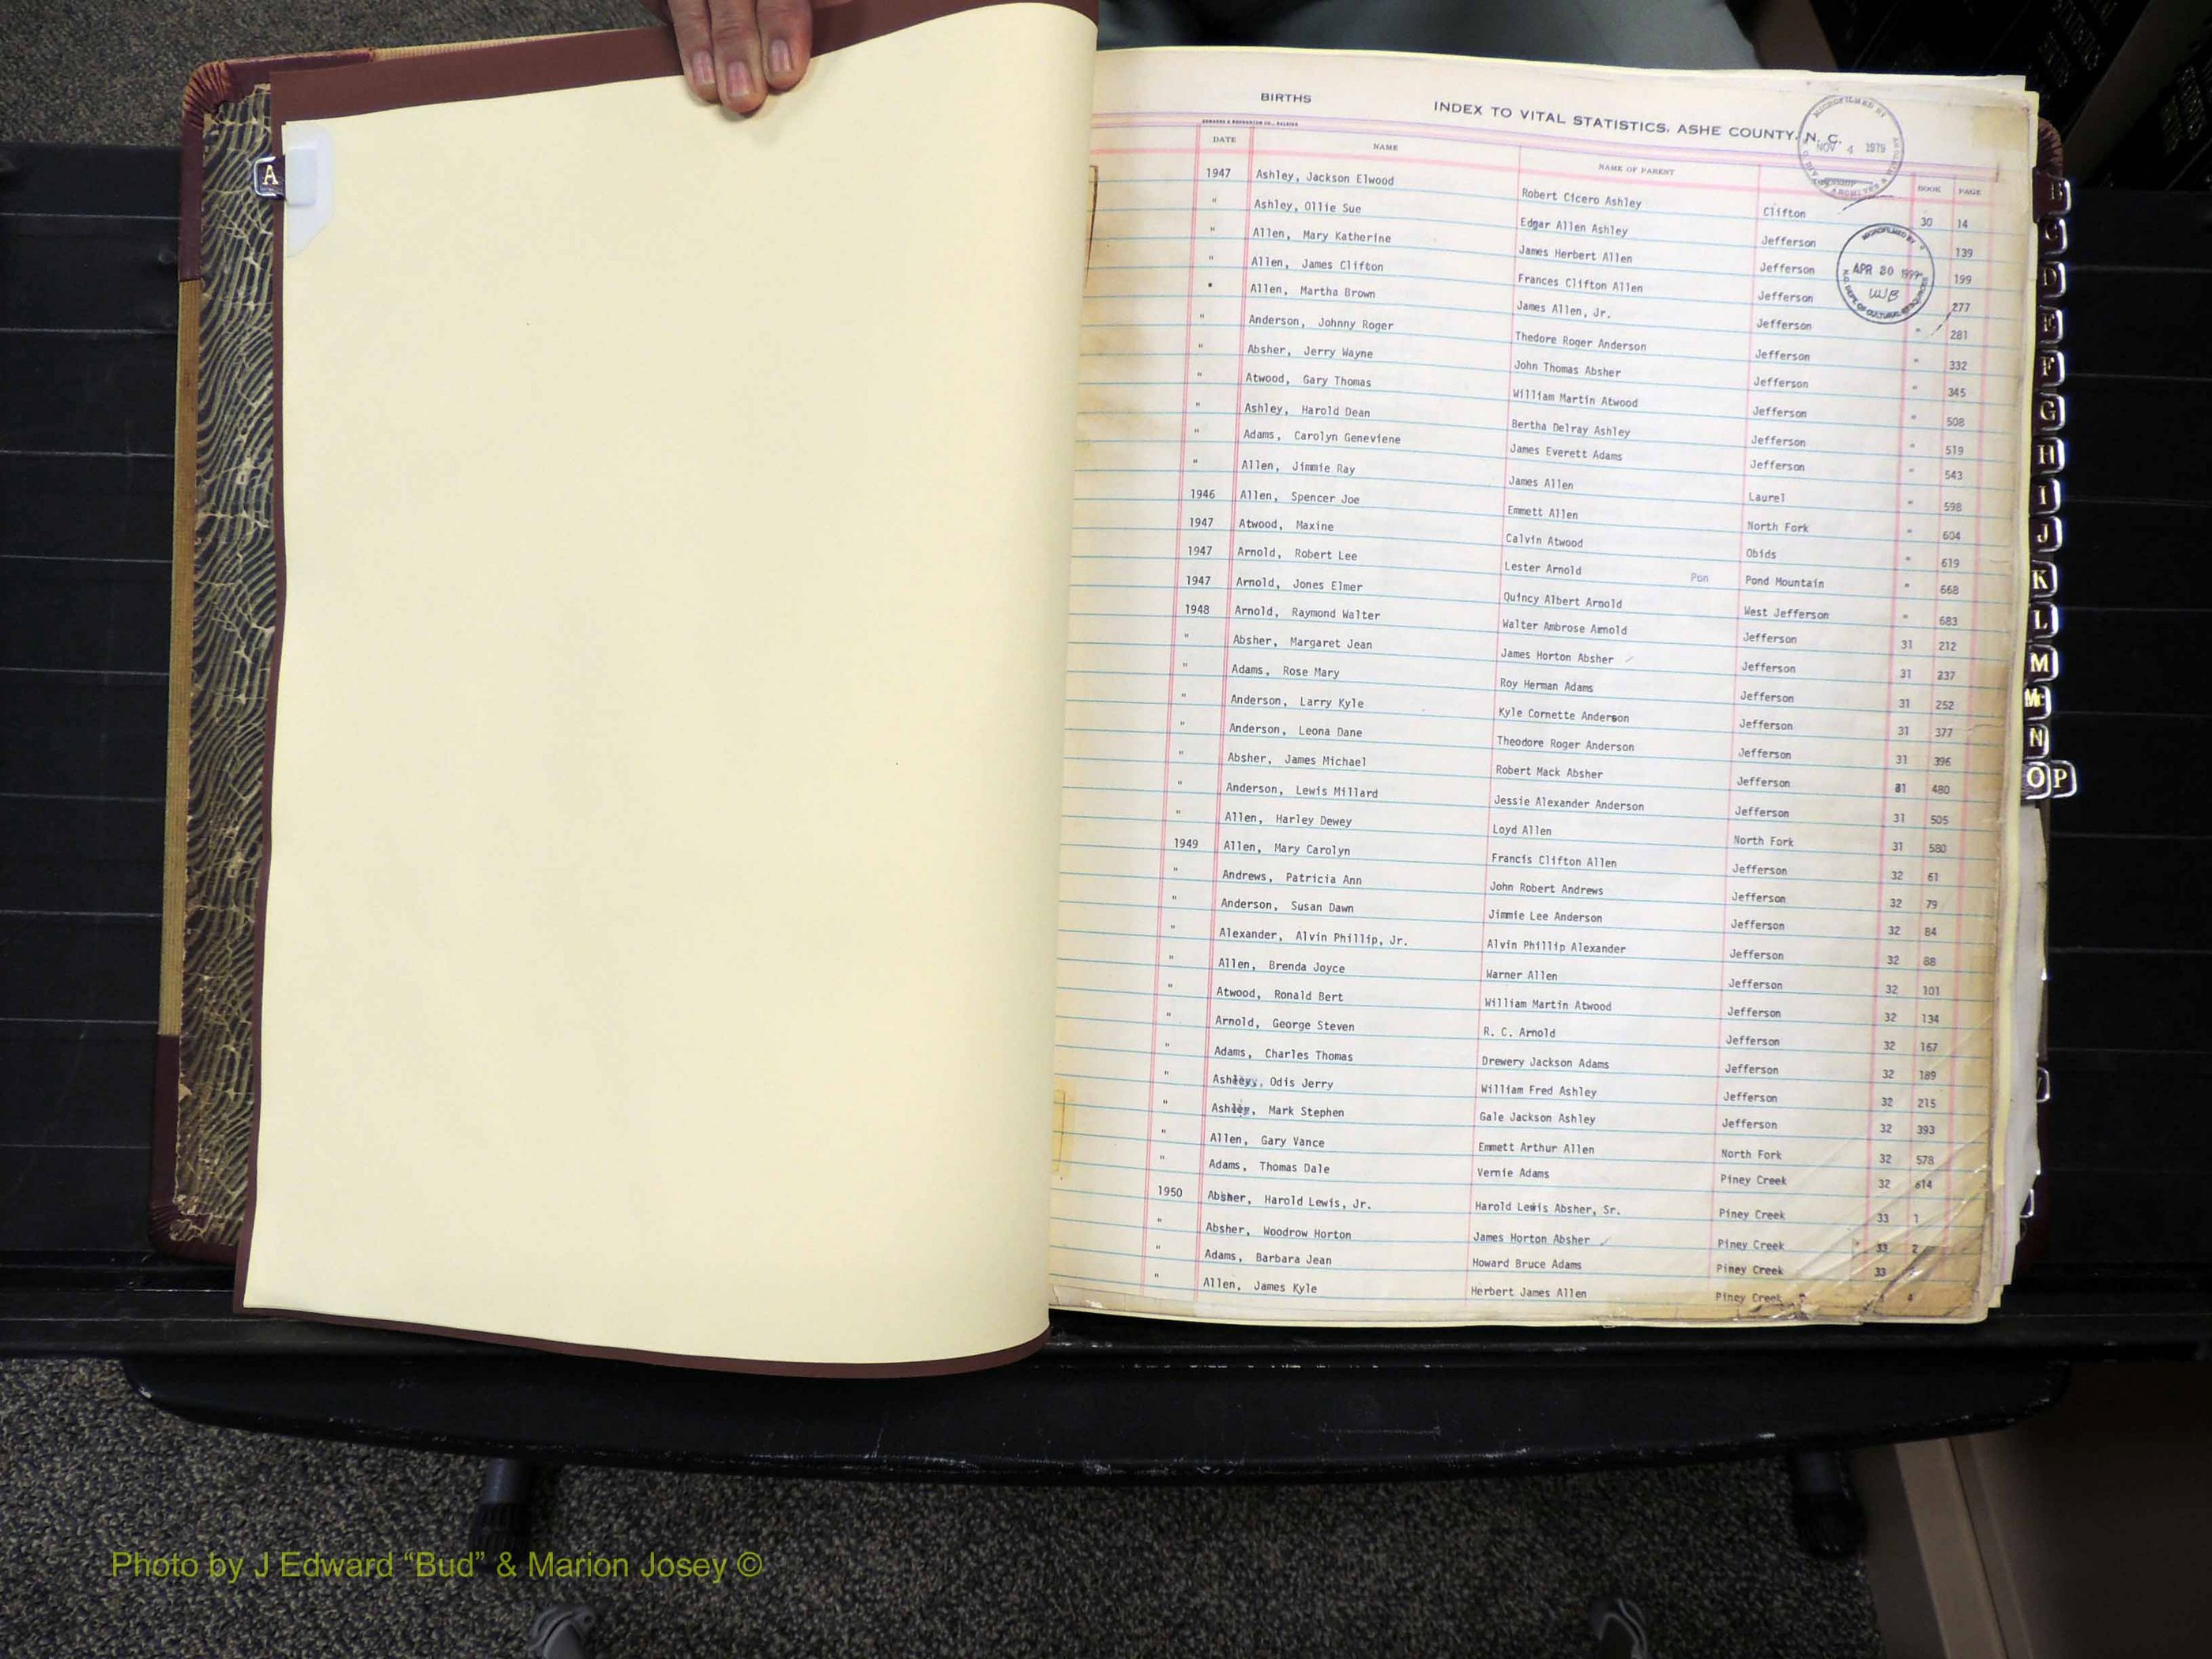 BIRTHS
INDEX TO VITAL STATISTICS, ASHE COUNTY, N. C.
MICROFILMED BY NOV 4 1979 ARCHIVES &
EDWARDS & BROUGHTON CO., RALEIGH
DATE NAME NAME OF PARENT BOOK PAGE
1947 Ashley, Jackson Elwood Robert Cicero Ashley Clifton 30 14
" Ashley, Ollie Sue Edgar Allen Ashley Jefferson 139
" Allen, Mary Katherine James Herbert Allen Jefferson 199
" Allen, James Clifton Frances Clifton Allen Jefferson 277
" Allen, Martha Brown James Allen, Jr. Jefferson " 281
" Anderson, Johnny Roger Thedore Roger Anderson Jefferson " 332
" Absher, Jerry Wayne John Thomas Absher Jefferson " 345
" Atwood, Gary Thomas William Martin Atwood Jefferson " 508
" Ashley, Harold Dean Bertha Delray Ashley Jefferson " 519
" Adams, Carolyn Geneviene James Everett Adams Jefferson " 543
" Allen, Jimmie Ray James Allen Laurel " 598
1946 Allen, Spencer Joe Emmett Allen North Fork " 604
1947 Atwood, Maxine Calvin Atwood Obids " 619
1947 Arnold, Robert Lee Lester Arnold Pon Pond Mountain " 668
1947 Arnold, Jones Elmer Quincy Albert Arnold West Jefferson " 683
1948 Arnold, Raymond Walter Walter Ambrose Arnold Jefferson 31 212
" Absher, Margaret Jean James Horton Absher Jefferson 31 237
" Adams, Rose Mary Roy Herman Adams Jefferson 31 252
" Anderson, Larry Kyle Kyle Cornette Anderson Jefferson 31 377
" Anderson, Leona Dane Theodore Roger Anderson Jefferson 31 396
" Absher, James Michael Robert Mack Absher Jefferson 31 480
" Anderson, Lewis Millard Jessie Alexander Anderson Jefferson 31 505
" Allen, Harley Dewey Loyd Allen North Fork 31 580
1949 Allen, Mary Carolyn Francis Clifton Allen Jefferson 32 61
" Andrews, Patricia Ann John Robert Andrews Jefferson 32 79
" Anderson, Susan Dawn Jimmie Lee Anderson Jefferson 32 84
" Alexander, Alvin Phillip, Jr. Alvin Phillip Alexander Jefferson 32 88
" Allen, Brenda Joyce Warner Allen Jefferson 32 101
" Atwood, Ronald Bert William Martin Atwood Jefferson 32 134
" Arnold, George Steven R. C. Arnold Jefferson 32 167
" Adams, Charles Thomas Drewery Jackson Adams Jefferson 32 189
" Ashley, Odis Jerry William Fred Ashley Jefferson 32 215
" Ashley, Mark Stephen Gale Jackson Ashley Jefferson 32 393
" Allen, Gary Vance Emmett Arthur Allen North Fork 32 578
" Adams, Thomas Dale Vernie Adams Piney Creek 32 614
1950 Absher, Harold Lewis, Jr. Harold Lewis Absher, Sr. Piney Creek 33 1
" Absher, Woodrow Horton James Horton Absher Piney Creek 33 2
" Adams, Barbara Jean Howard Bruce Adams Piney Creek 33
" Allen, James Kyle Herbert James Allen Piney Creek 4
MICROFILMED BY APR 20 1999 WJB N.C. DEPT. OF CULTURAL RESOURCES
A
B
C
D
E
F
G
H
I
J
K
L
M
Mc
N
O P
Photo by J Edward “Bud” & Marion Josey ©